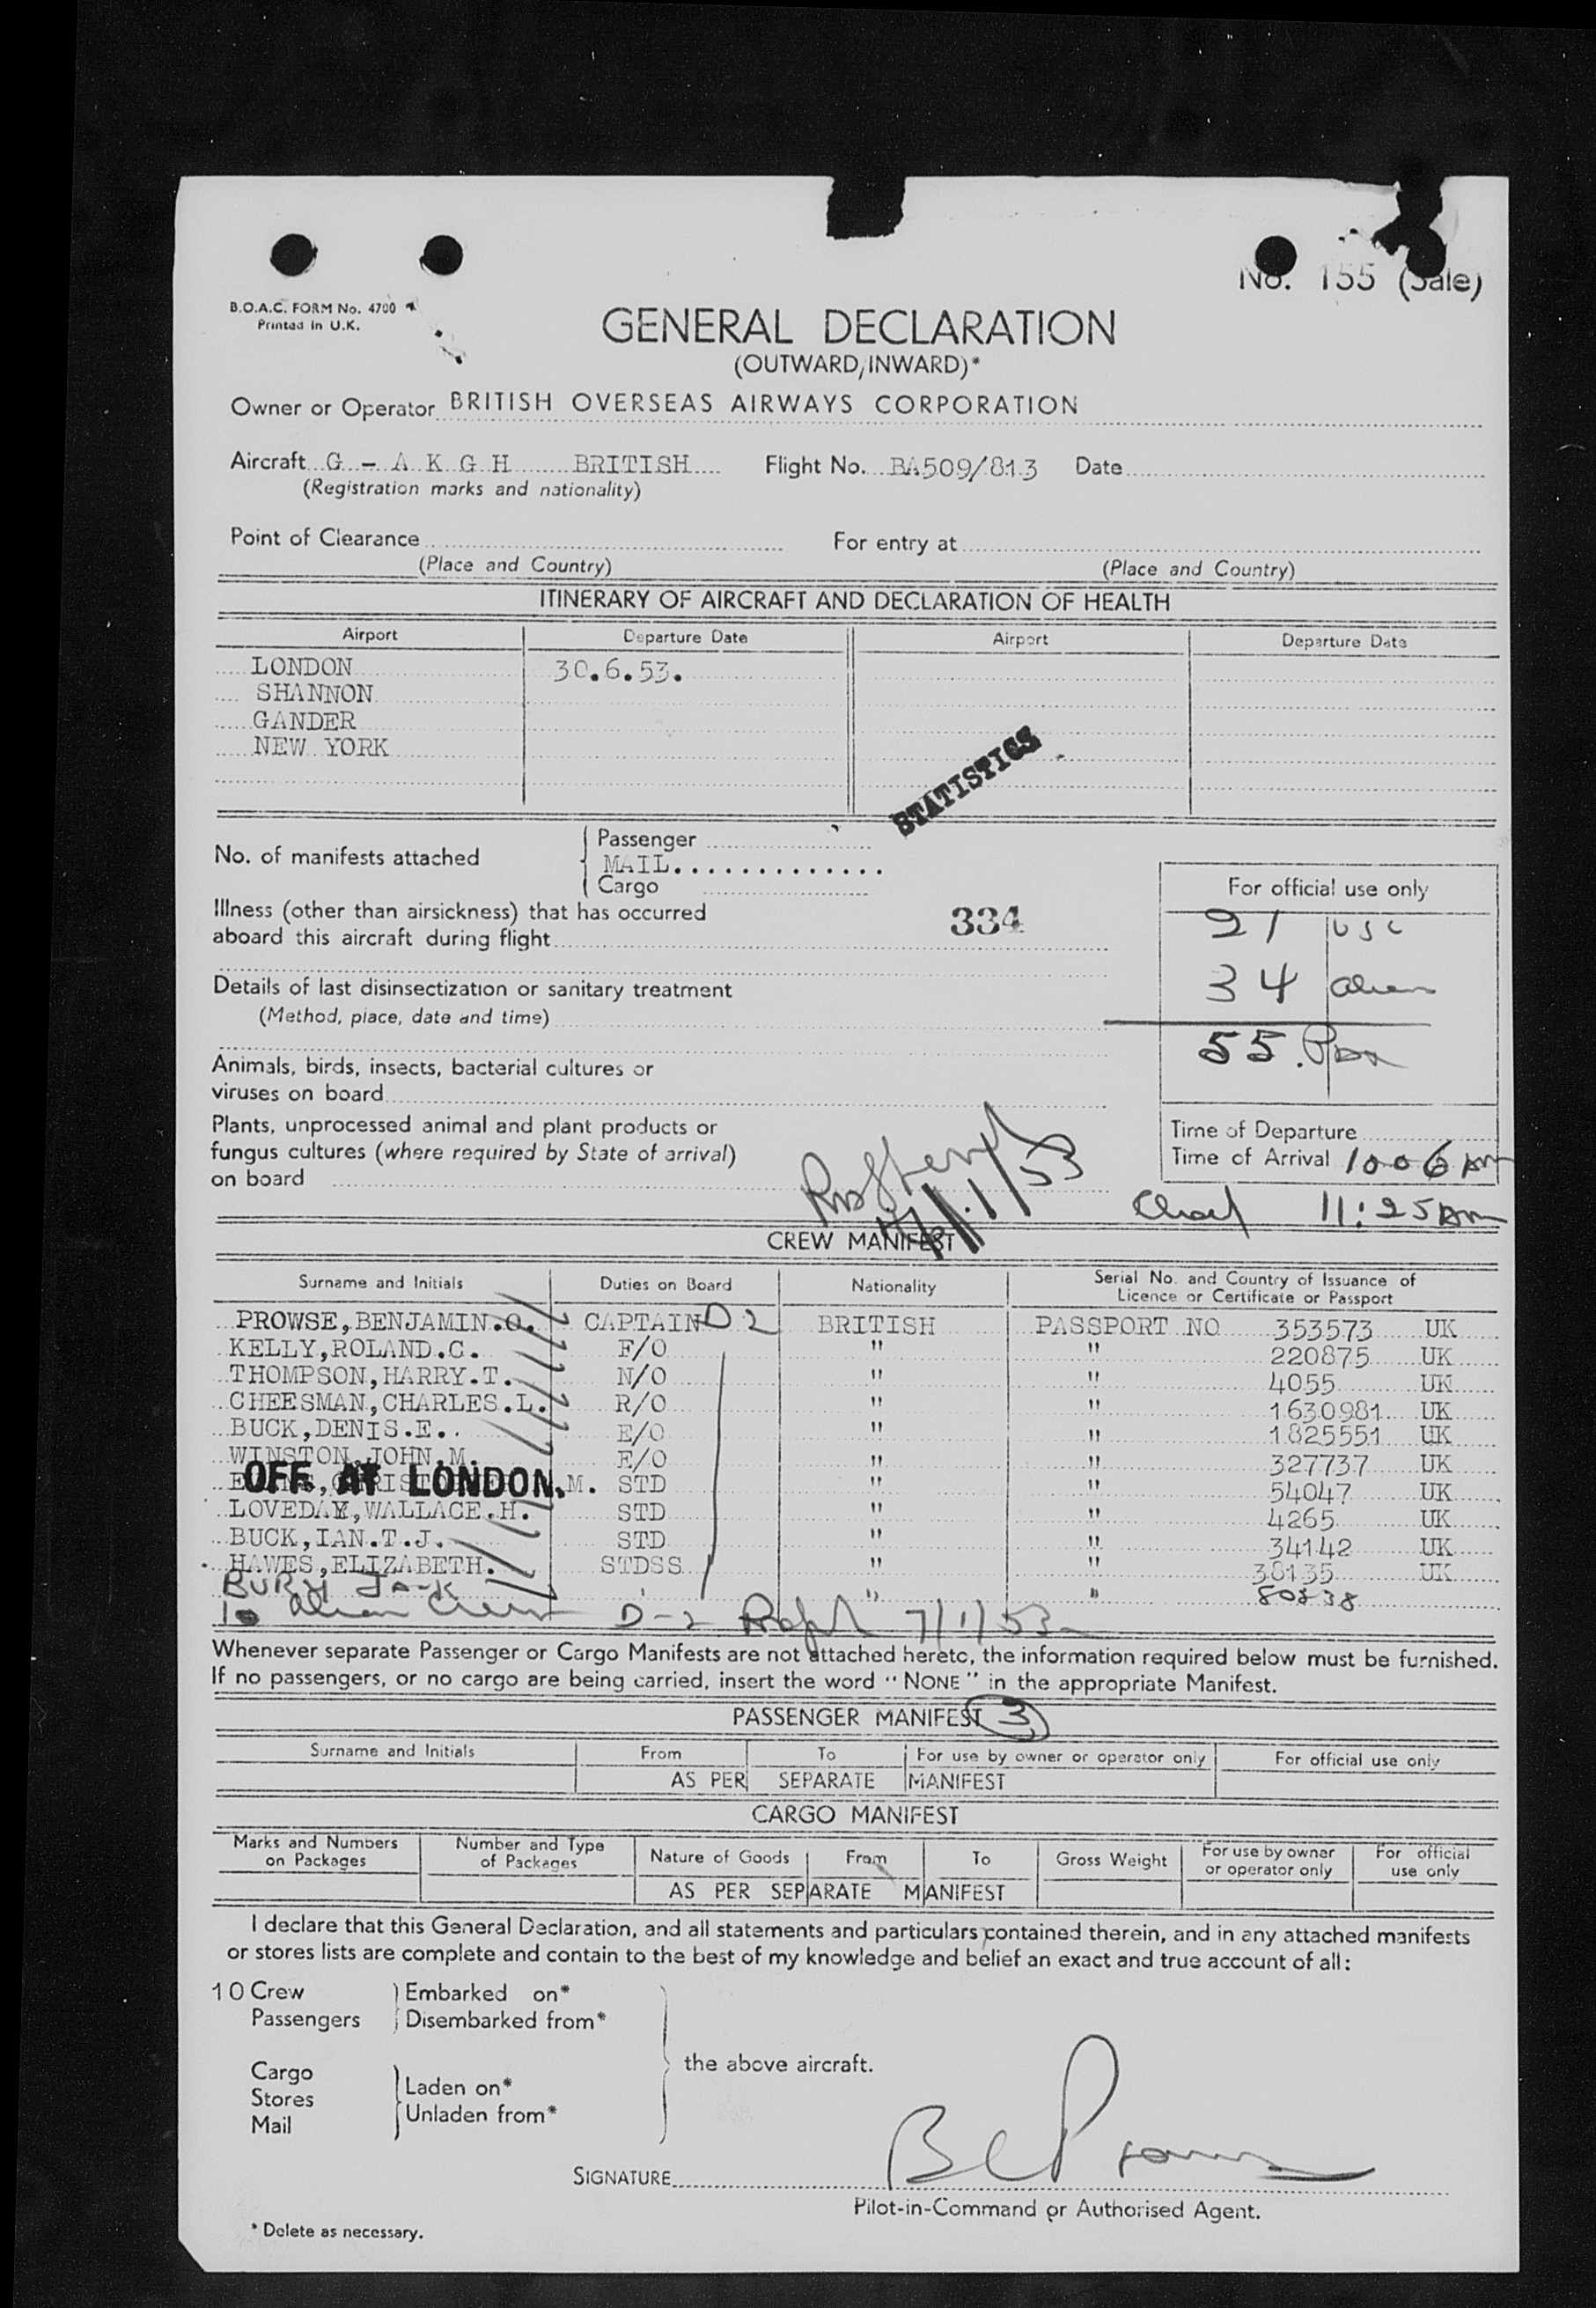 No. 155 (Sale)
B.O.A.C. FORM No. 4700
Printed in U.K.
GENERAL DECLARATION
(OUTWARD/INWARD)*
Owner or Operator BRITISH OVERSEAS AIRWAYS CORPORATION
Aircraft G - A K G H BRITISH Flight No. BA509/813 Date
(Registration marks and nationality)
Point of Clearance For entry at
(Place and Country) (Place and Country)
ITINERARY OF AIRCRAFT AND DECLARATION OF HEALTH
Airport Departure Date Airport Departure Date
LONDON 30.6.53.
SHANNON
GANDER
NEW YORK
STATISTICS
No. of manifests attached
Passenger
MAIL.............
Cargo
For official use only
Illness (other than airsickness) that has occurred
aboard this aircraft during flight
334
21 USC
34 alien
55. Pax
Details of last disinsectization or sanitary treatment
(Method, place, date and time)
Animals, birds, insects, bacterial cultures or
viruses on board
Plants, unprocessed animal and plant products or
fungus cultures (where required by State of arrival)
on board
Time of Departure
Time of Arrival 1006 am
11:25 am
7/1/53
CREW MANIFEST
Surname and Initials Duties on Board Nationality Serial No. and Country of Issuance of
Licence or Certificate or Passport
PROWSE,BENJAMIN.C. CAPTAIN D 2 BRITISH PASSPORT NO 353573 UK
KELLY,ROLAND.C. F/O " " 220875 UK
THOMPSON,HARRY.T. N/O " " 4055 UK
CHEESMAN,CHARLES.L. R/O " " 1630981 UK
BUCK,DENIS.E.. E/O " " 1825551 UK
WINSTON,JOHN.M. E/O " " 327737 UK
OFF AT LONDON
M. STD " " 54047 UK
LOVEDAY,WALLACE.H. STD " " 4265 UK
BUCK,IAN.T.J. STD " " 34142 UK
HAWES,ELIZABETH. STDSS " " 38135 UK
" " 80838
10 alien Crew D-2 7/1/53
Whenever separate Passenger or Cargo Manifests are not attached hereto, the information required below must be furnished.
If no passengers, or no cargo are being carried, insert the word "NONE" in the appropriate Manifest.
PASSENGER MANIFEST 3
Surname and Initials From To For use by owner or operator only For official use only
AS PER SEPARATE MANIFEST
CARGO MANIFEST
Marks and Numbers on Packages Number and Type of Packages Nature of Goods From To Gross Weight For use by owner or operator only For official use only
AS PER SEPARATE MANIFEST
I declare that this General Declaration, and all statements and particulars contained therein, and in any attached manifests
or stores lists are complete and contain to the best of my knowledge and belief an exact and true account of all:
10 Crew Embarked on*
Passengers Disembarked from*
the above aircraft.
Cargo
Stores Laden on*
Mail Unladen from*
SIGNATURE
Pilot-in-Command or Authorised Agent.
* Delete as necessary.